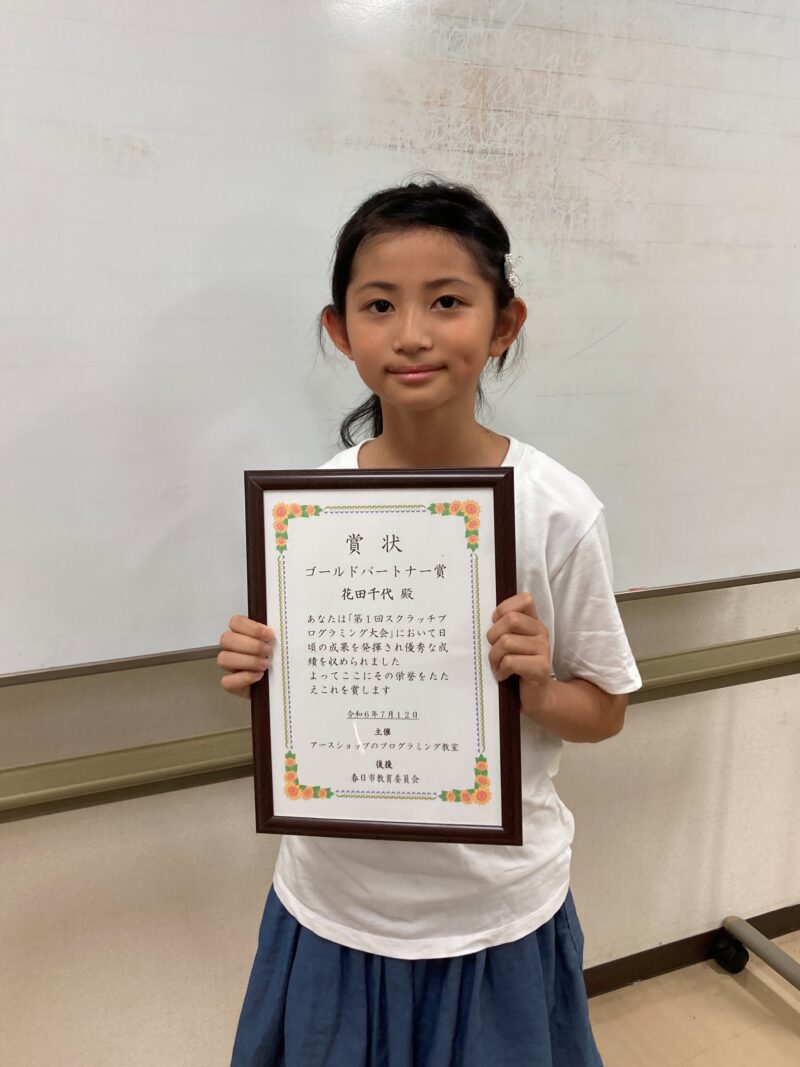 賞 状
ゴールドパートナー賞
花田千代 殿
あなたは「第1回スクラッチプ
ログラミング大会」において日
頃の成果を発揮され優秀な成
績を収められました
よってここにその栄誉をたた
えこれを賞します
令和6年7月12日
主催
アースショップのプログラミング教室
後援
春日市教育委員会